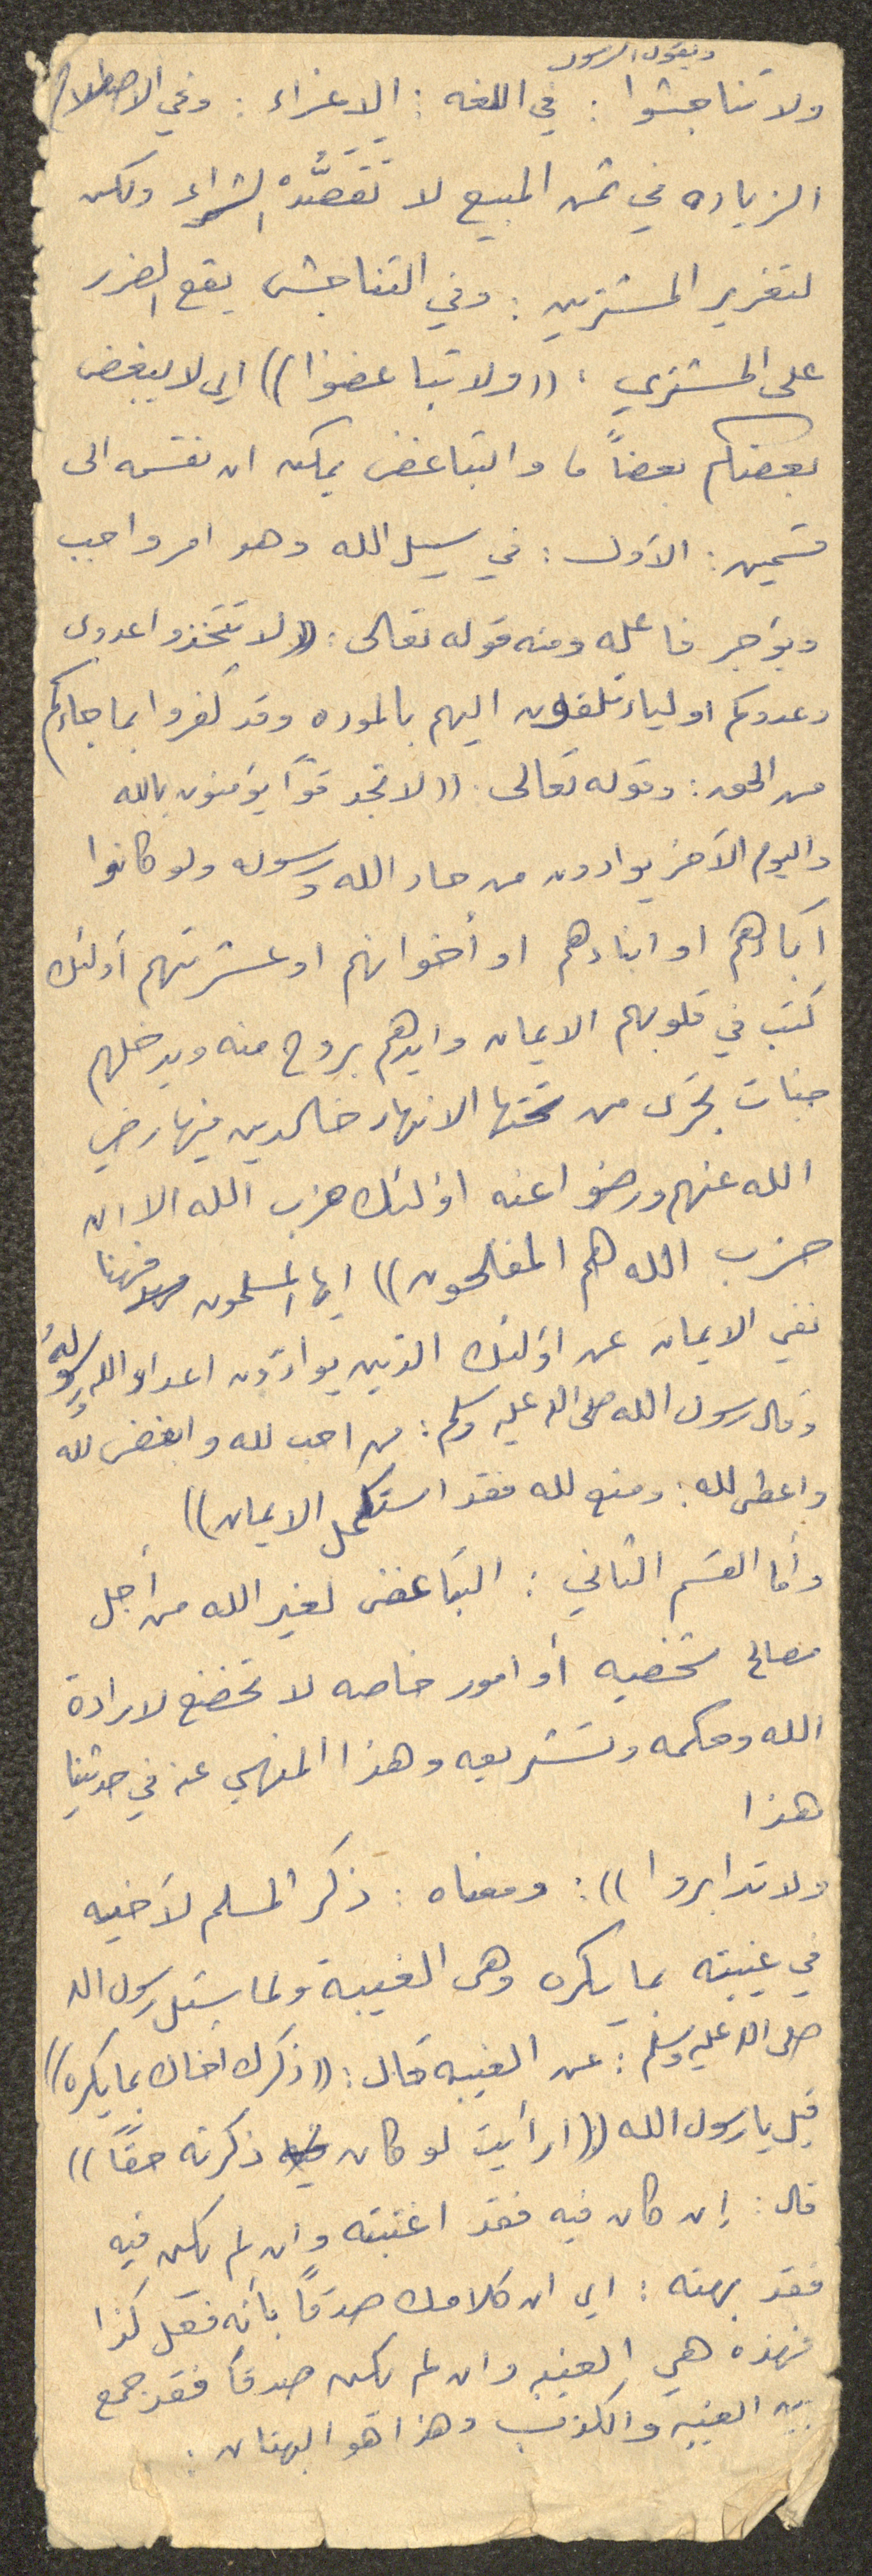 ويقول الرسول
ولا تناجشوا : في اللغه : الاغراء : وفي الاصطلاح
الزياده في ثمن المبيع لا تقصُّده الشراء ولكن
لتغرير المشترين : وفي التناجش يقع الضرر
على المشتري : ((ولا تباغضوا)) اي لا يبغض
بعضكم بعضاً والتباغض يمكن ان نقسمه الى
قسمين : الأول : في سبيل الله وهو امر واجب
ويؤجر فاعله ومنه قوله تعالى : ((لا تتخذوا عدوى
وعدوكم اولياء تلقون اليهم بالموده وقد كفروا بما جاءكم
من الحق : وقوله تعالى : ((لا تجد قوماً يؤمنون بالله
واليوم الآخر يوادون من حاد الله ورسوله ولو كانوا
آباءهم او ابناءهم او أخوانهم او عشيرتهم أولئك
كتب في قلوبهم الايمان وايدهم بروح منه ويدخلهم
جنات تجرى من تحتها الانهار خالدين فيها رضي
الله عنهم ورضوا عنه اولئك حزب الله الا ان
حزب الله هم المفلحون)) ايها المسلمون فهنا
نفي الايمان عن اولئك الذين يوادّون اعداء الله ورسوله
وقال رسول الله صلى الله عليه وسلم : من احب لله وابغض لله
واعطى لله : ومنع لله فقد استكمل الايمان))
وأما القسم الثاني : التباغض لغير الله من أجل
مصالح شخصيه أو امور خاصه لا تخضع لارادة
الله وحكمه وتشريعه وهذا المنهي عنه في حديثنا
هذا
ولا تدابروا)) : ومعناه : ذكر المسلم لأخيه
في غيبته بما يكره وهى الغيبة ولما سئل رسول الله
صلى الله عليه وسلم : عن الغيبه قال : ((ذكرك اخاك بما يكره))
قيل يا رسول الله ((ارأيت لو كان ذكرته حقاً))
قال : إن كان فيه فقد اغتبته وان لم يكن فيه
فقد بهته : اي ان كلامك صدقاً بأنه فعل كذا
فهذه هي الغيبه وان لم يكن صدقاً فقد جمع
بين الغيبه والكذب وهذا هو البهتان :